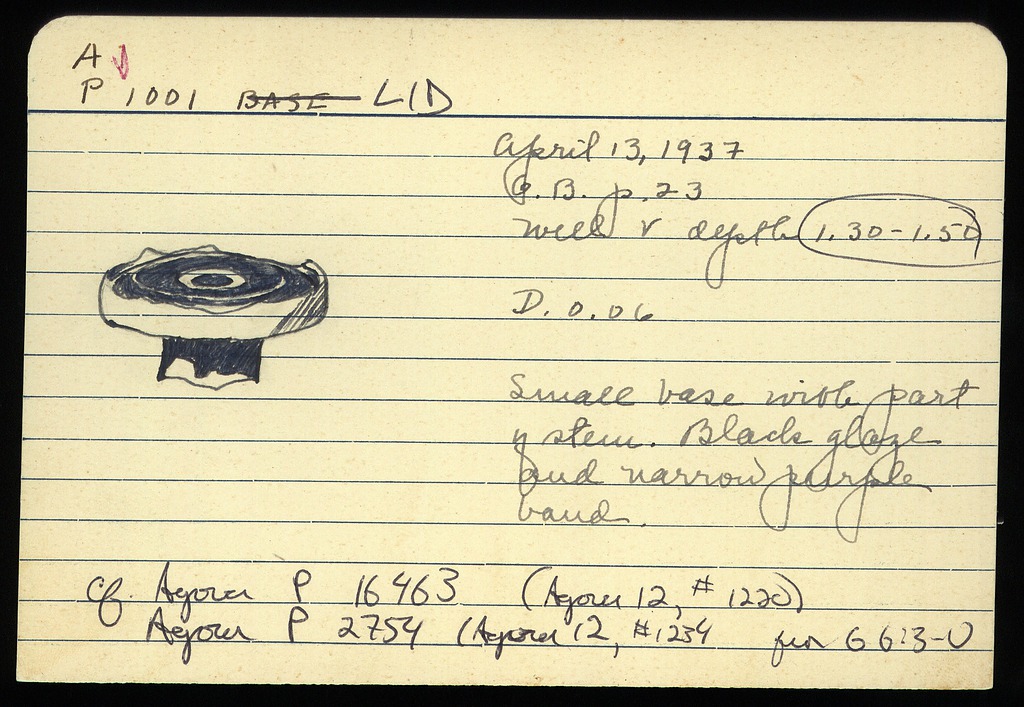 A
P 1001 BASE LID
April 13, 1937
G.B. p. 23
Well V depth 1.30-1.50
D. 0.06
Small base with part
of stem. Black glaze
and narrow purple
band.
cf. Agora P 16463 (Agora 12, # 1220)
Agora P 2754 (Agora 12, #1234 from G 6:3-U